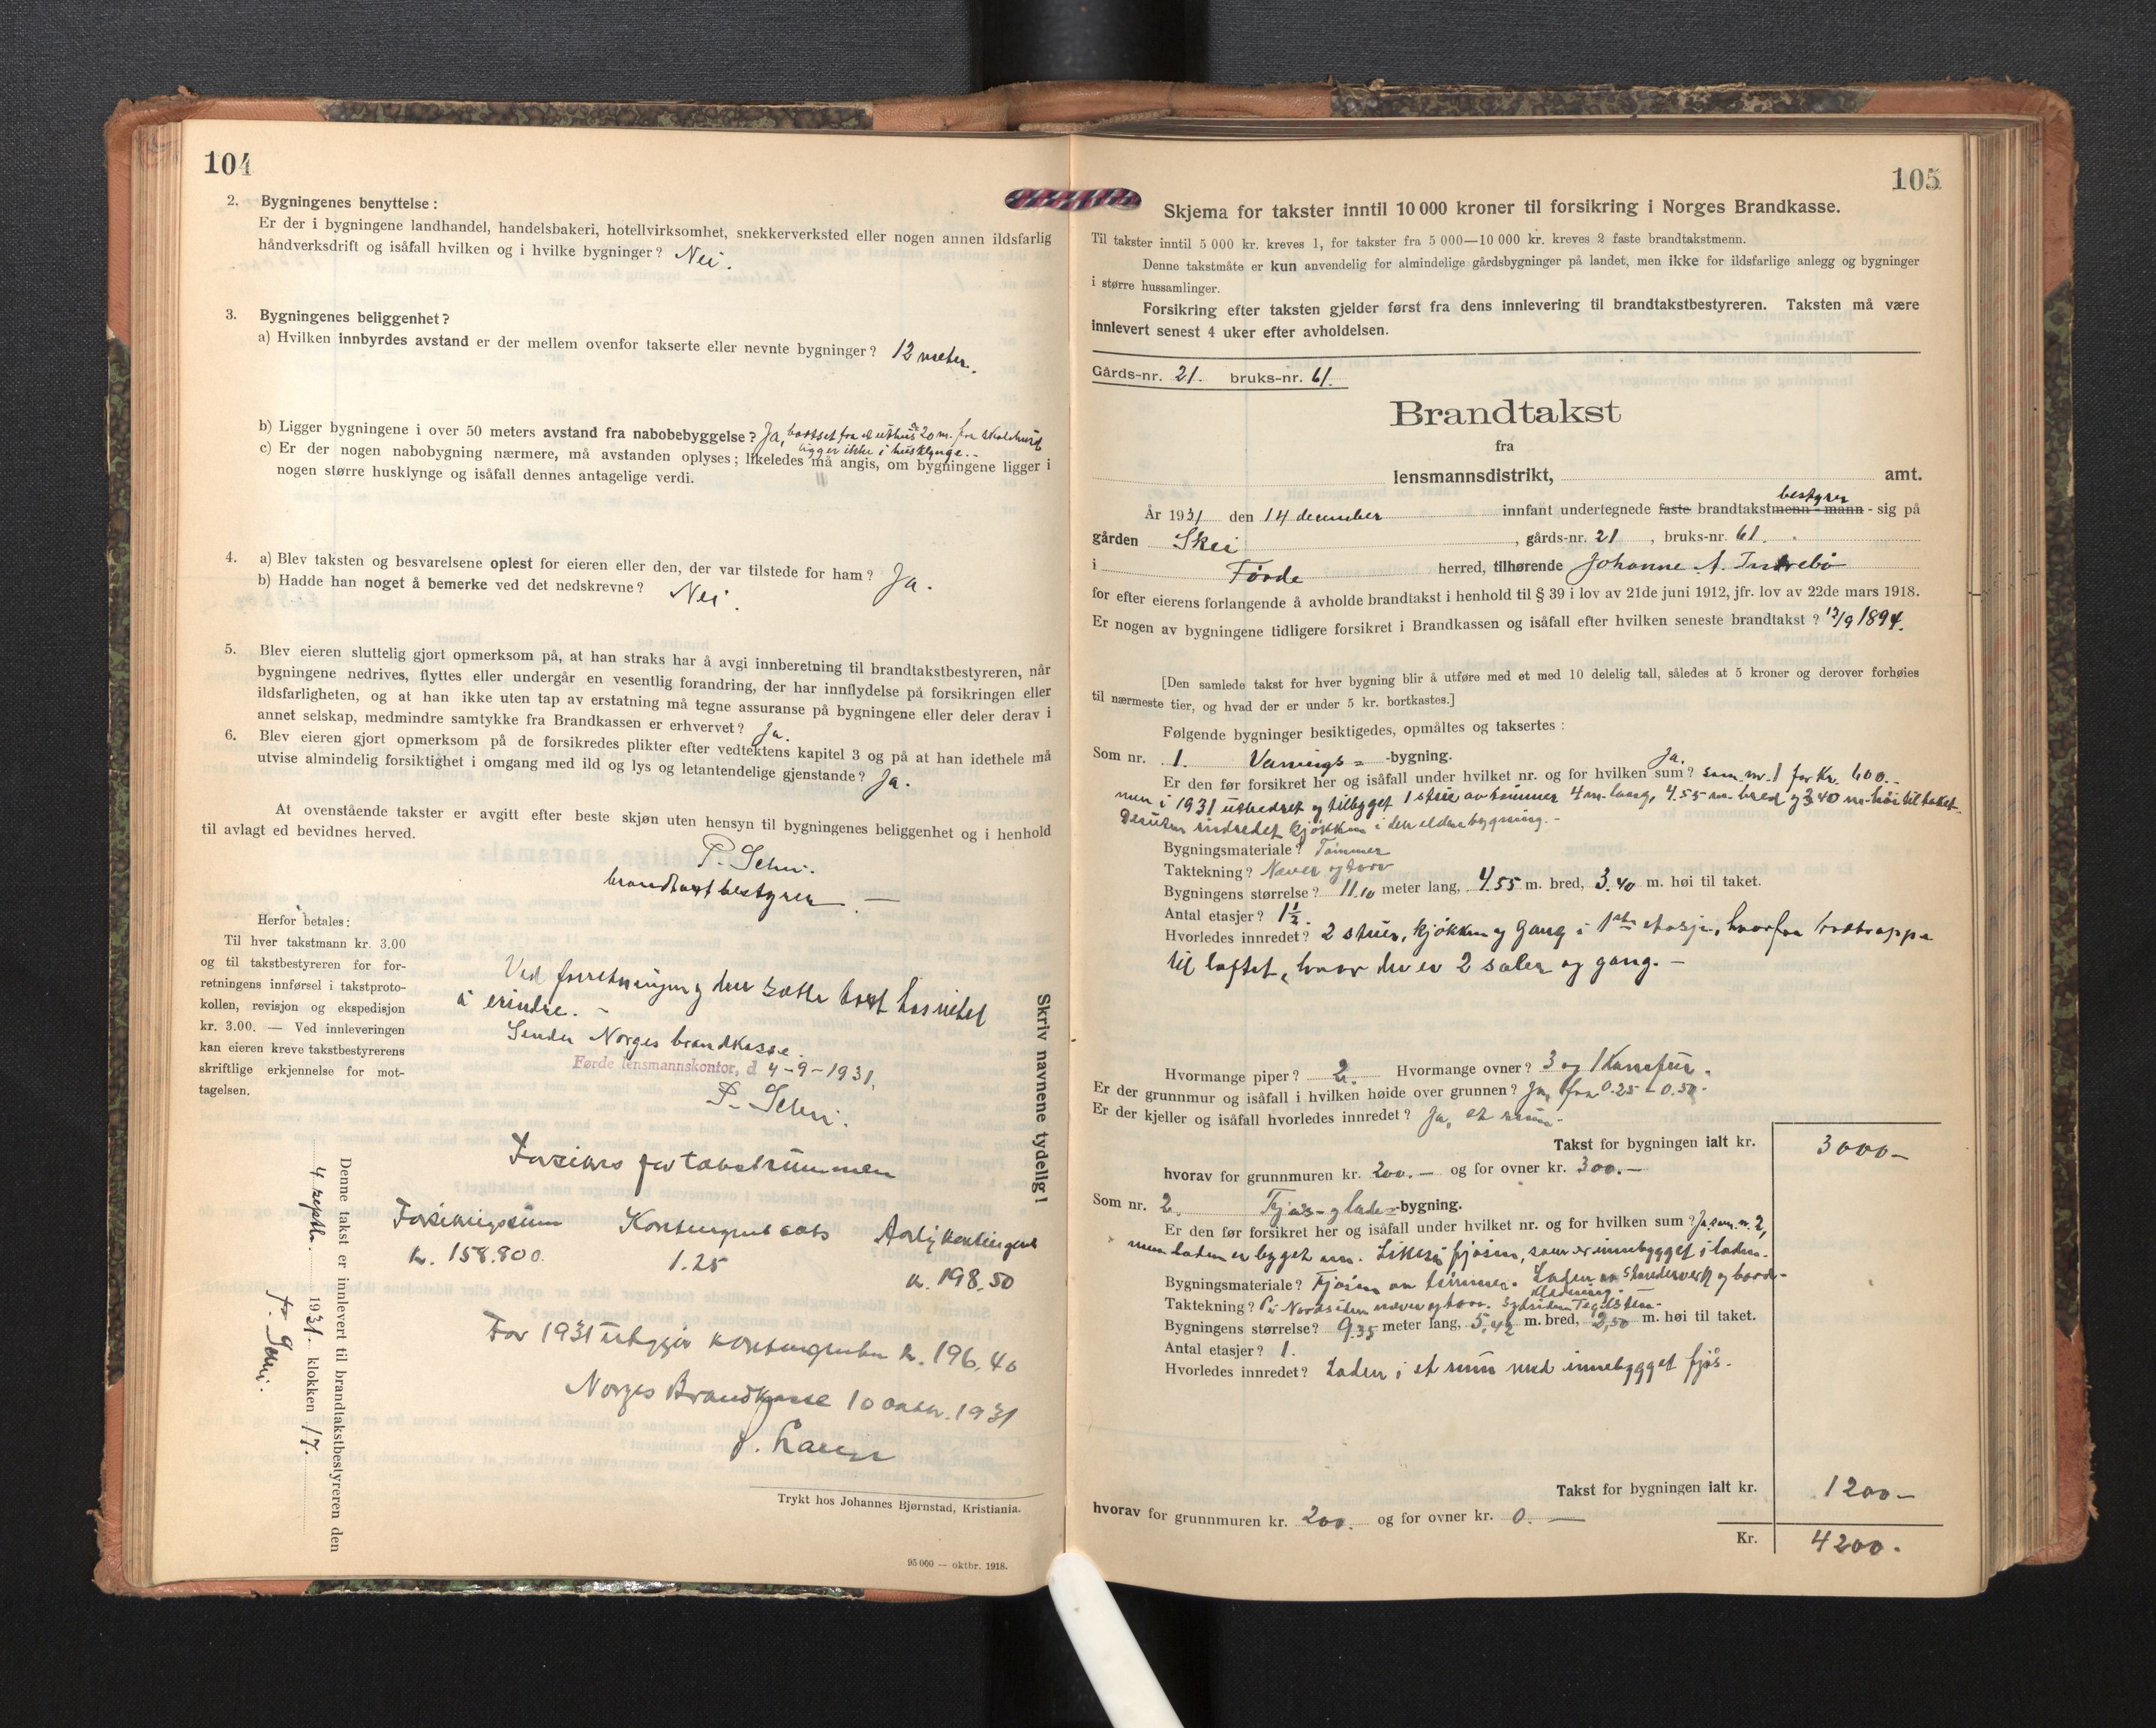 104
2. Bygningenes benyttelse :
Er der i bygningene landhandel, handelsbakeri, hotellvirksomhet, snekkerverksted eller nogen annen ildsfarlig
håndverksdrift og isåfall hvilken og i hvilke bygninger? Nei.
3. Bygningenes beliggenhet?
a) Hvilken innbyrdes avstand er der mellem ovenfor takserte eller nevnte bygninger? 12 meter.
b) Ligger bygningene i over 50 meters avstand fra nabobebyggelse? Ja, bortset fra et uthus 20 m. fra
ligger ikke i husklynge.-
c) Er der nogen nabobygning nærmere, må avstanden oplyses; likeledes må angis, om bygningene ligger i
nogen større husklynge og isåfall dennes antagelige verdi.
4. a) Blev taksten og besvarelsene oplest for eieren eller den, der var tilstede for ham? Ja.
b) Hadde han noget å bemerke ved det nedskrevne? Nei.
5. Blev eieren sluttelig gjort opmerksom på, at han straks har å avgi innberetning til brandtakstbestyreren, når
bygningene nedrives, flyttes eller undergår en vesentlig forandring, der har innflydelse på forsikringen eller
ildsfarligheten, og at han ikke uten tap av erstatning må tegne assuranse på bygningene eller deler derav i
annet selskap, medmindre samtykke fra Brandkassen er erhvervet? Ja.
6. Blev eieren gjort opmerksom på de forsikredes plikter efter vedtektens kapitel 3 og på at han idethele må
utvise almindelig forsiktighet i omgang med ild og lys og letantendelige gjenstande? Ja.
At ovenstående takster er avgitt efter beste skjøn uten hensyn til bygningenes beliggenhet og i henhold
til avlagt ed bevidnes herved.
brandtakstbestyrer.
Herfor betales:
Til hver takstmann kr. 3.00
og til takstbestyreren for for-
retningens innførsel i takstproto-
kollen, revisjon og ekspedisjon
kr. 3.00. — Ved innleveringen
kan eieren kreve takstbestyrerens
skriftlige erkjennelse for mot-
tagelsen.
Ved forretningen og den satte takst has intet
å erindre. -
Sender Norges brandkasse.
Førde lensmannskontor, d 4-9-1931.
Forsikres for takstsummen
Forsikringssum Kontingentsats Aarlig kontingent
kr. 158.800. 1.25 kr. 198,50
For 1931 utgjør kontingenten kr. 196,40
Norges Brandkasse 10 oktbr. 1931
Skriv navnene tydelig!
Denne takst er innlevert til brandtakstbestyreren den
4 septbr. 1931. klokken 17.
Trykt hos Johannes Bjørnstad, Kristiania.
95 000 — oktbr. 1918.
105
Skjema for takster inntil 10 000 kroner til forsikring i Norges Brandkasse.
Til takster inntil 5 000 kr. kreves 1, for takster fra 5 000—10 000 kr. kreves 2 faste brandtakstmenn.
Denne takstmåte er kun anvendelig for almindelige gårdsbygninger på landet, men ikke for ildsfarlige anlegg og bygninger
i større hussamlinger.
Forsikring efter taksten gjelder først fra dens innlevering til brandtakstbestyreren. Taksten må være
innlevert senest 4 uker efter avholdelsen.
Gårds-nr. 21. bruks-nr. 61.
Brandtakst
fra
lensmannsdistrikt, amt.
bestyrer
År 1931 den 14 december innfant undertegnede faste brandtakstmenn - mann - sig på
gården Skei, gårds-nr. 21, bruks-nr. 61.
i Førde herred, tilhørende Johanne A.
for efter eierens forlangende å avholde brandtakst i henhold til § 39 i lov av 21de juni 1912, jfr. lov av 22de mars 1918.
Er nogen av bygningene tidligere forsikret i Brandkassen og isåfall efter hvilken seneste brandtakst? 13/9 1894.
[Den samlede takst for hver bygning blir å utføre med et med 10 delelig tall, således at 5 kroner og derover forhøies
til nærmeste tier, og hvad der er under 5 kr. bortkastes.]
Følgende bygninger besiktigedes, opmåltes og taksertes :
Som nr. 1. Vaanings= -bygning. Ja.
Er den før forsikret her og isåfall under hvilket nr. og for hvilken sum? som nr. 1 for kr. 600.-
men i 1931 utbedret og tilbygget 1 stue av tømmer 4 m. lang, 4.55 m. bred og 3.40 m. høi til taket.
Desuten indredet kjøkken i den eldre bygning.-
Bygningsmateriale? Tømmer
Taktekning? Never og torv
Bygningens størrelse? 11.10 meter lang, 4.55 m. bred, 3.40 m. høi til taket.
Antal etasjer? 1½.
Hvorledes innredet? 2 stuer, kjøkken og gang i 1ste etasje, hvorfra trætrappe
til loftet, hvor der er 2 saler og gang.-
Hvormange piper? 2. Hvormange ovner? 3 og 1
Er der grunnmur og isåfall i hvilken høide over grunnen? Ja, fra 0.25 - 0.50.
Er der kjeller og isåfall hvorledes innredet? Ja, et rum.
Takst for bygningen ialt kr. 3000-
hvorav for grunnmuren kr. 200.— og for ovner kr. 300.—
Som nr. 2. Fjøs- og lade=-bygning.
Er den før forsikret her og isåfall under hvilket nr. og for hvilken sum? Ja som nr. 2,
men laden er bygget om. Likeså fjøsen, som er innebygget i laden.
Bygningsmateriale? Fjøsen av tømmer. Laden av stenderverk og bord-
klædning.
Taktekning? På Nordsiden never og torv. Sydsiden Teglsten.
Bygningens størrelse? 9.35 meter lang, 5,42 m. bred, 2,50 m. høi til taket.
Antal etasjer? 1.
Hvorledes innredet? Laden i et rum med innebygget fjøs.
Takst for bygningen ialt kr. 1200-
hvorav for grunnmuren kr. 200. og for ovner kr. 0.—
Kr. 4200.